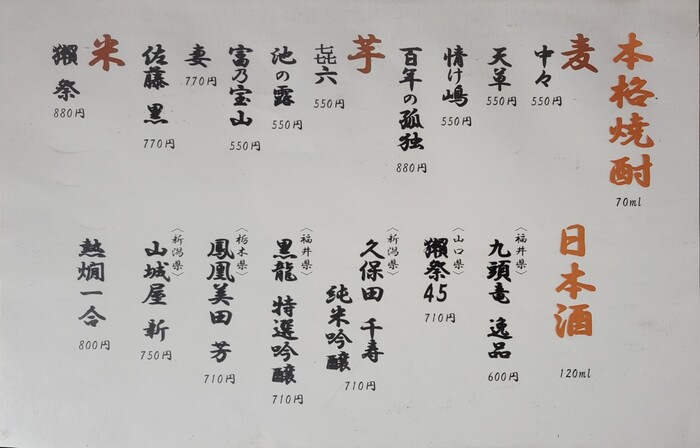 本格焼酎
70ml
麦
中々
550円
天草
550円
情け嶋
550円
百年の孤独
880円
芋
㐂六
550円
池の露
550円
富乃宝山
550円
妻
770円
佐藤 黒
770円
米
獺祭
880円
日本酒
120ml
〈福井県〉
九頭竜 逸品
600円
〈山口県〉
獺祭45
710円
〈新潟県〉
久保田 千寿
純米吟醸
710円
〈福井県〉
黒龍 特選吟醸
710円
〈栃木県〉
鳳凰美田 芳
710円
〈新潟県〉
山城屋 新
750円
熱燗一合
800円